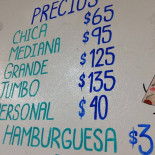 PRECIOS
CHICA $65
MEDIANA $95
GRANDE $125
JUMBO $135
PERSONAL $40
HAMBURGUESA $3